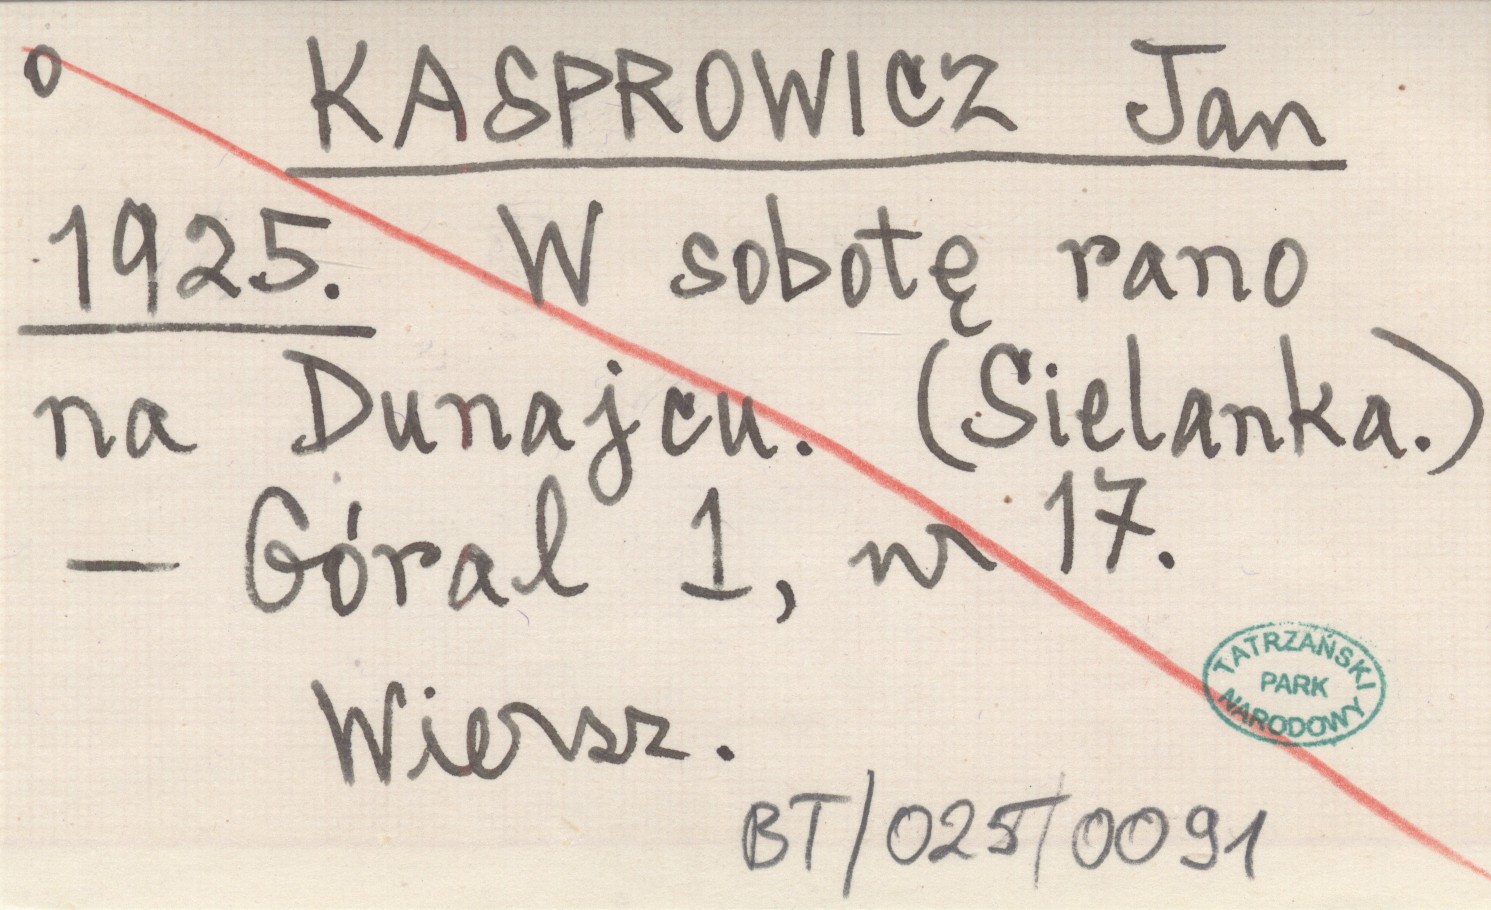 o KASPROWICZ Jan
1925. W sobotę rano
na Dunajcu. (Sielanka.)
— Góral 1, nr 17.
Wiersz.
TATRZAŃSKI
PARK
NARODOWY
BT/025/0091